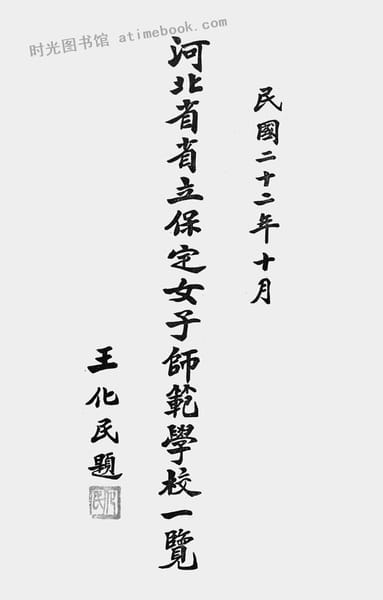 时光图书馆 atimebook.com
民國二十二年十月
河北省省立保定女子師範學校一覽
王化民題
化民